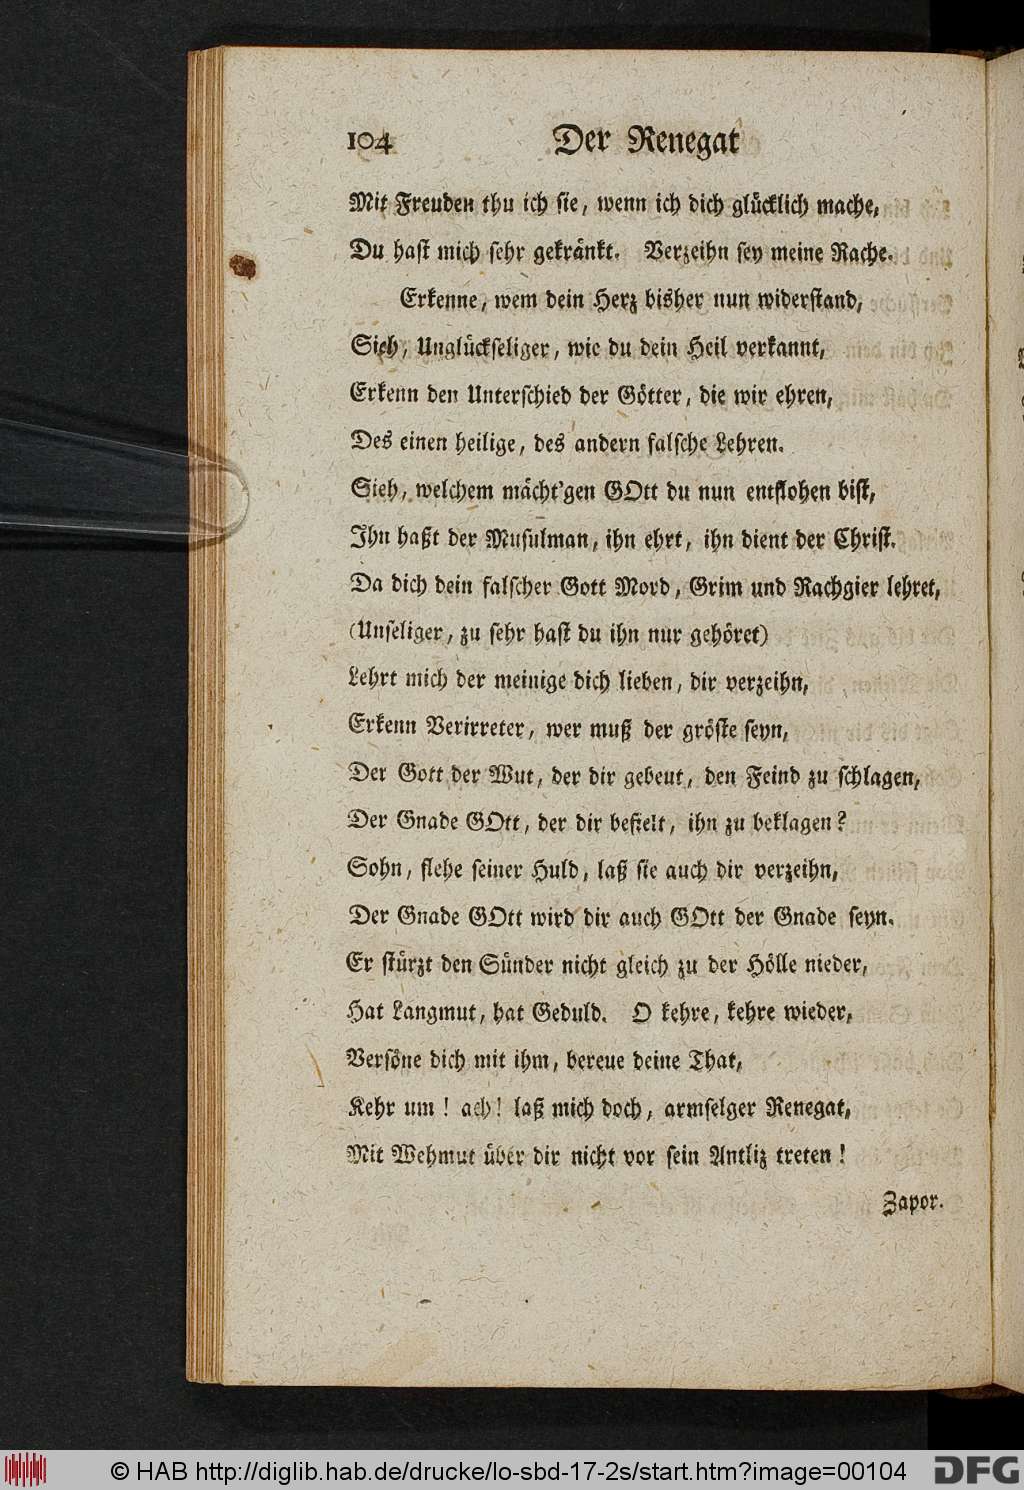 104 Der Renegat
Mit Freuden thu ich sie, wenn ich dich glücklich mache,
Du hast mich sehr gekränkt. Verzeihn sey meine Rache.
Erkenne, wem dein Herz bisher nun widerstand,
Sieh, Unglückseliger, wie du dein Heil verkannt,
Erkenn den Unterschied der Götter, die wir ehren,
Des einen heilige, des andern falsche Lehren.
Sieh, welchem mächt'gen GOtt du nun entflohen bist,
Ihn haßt der Musulman, ihn ehrt, ihn dient der Christ.
Da dich dein falscher Gott Mord, Grim und Rachgier lehret,
(Unseliger, zu sehr hast du ihn nur gehöret)
Lehrt mich der meinige dich lieben, dir verzeihn,
Erkenn Verirreter, wer muß der gröste seyn,
Der Gott der Wut, der dir gebeut, den Feind zu schlagen,
Der Gnade GOtt, der dir befielt, ihn zu beklagen?
Sohn, flehe seiner Huld, laß sie auch dir verzeihn,
Der Gnade GOtt wird dir auch GOtt der Gnade seyn.
Er stürzt den Sünder nicht gleich zu der Hölle nieder,
Hat Langmut, hat Geduld. O kehre, kehre wieder,
Versöne dich mit ihm, bereue deine That,
Kehr um! ach! laß mich doch, armselger Renegat,
Mit Wehmut über dir nicht vor sein Antliz treten!
Zapor.
© HAB http://diglib.hab.de/drucke/lo-sbd-17-2s/start.htm?image=00104 DFG